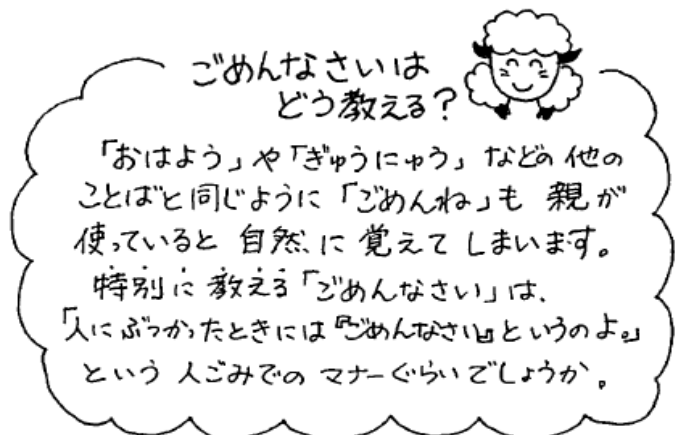 ごめんなさいは
どう教える？
「おはよう」や「ぎゅうにゅう」などの他の
ことばと同じように「ごめんね」も親が
使っていると自然に覚えてしまいます。
特別に教える「ごめんなさい」は、
「人にぶつかったときには『ごめんなさい』というのよ。」
という人ごみでのマナーぐらいでしょうか。